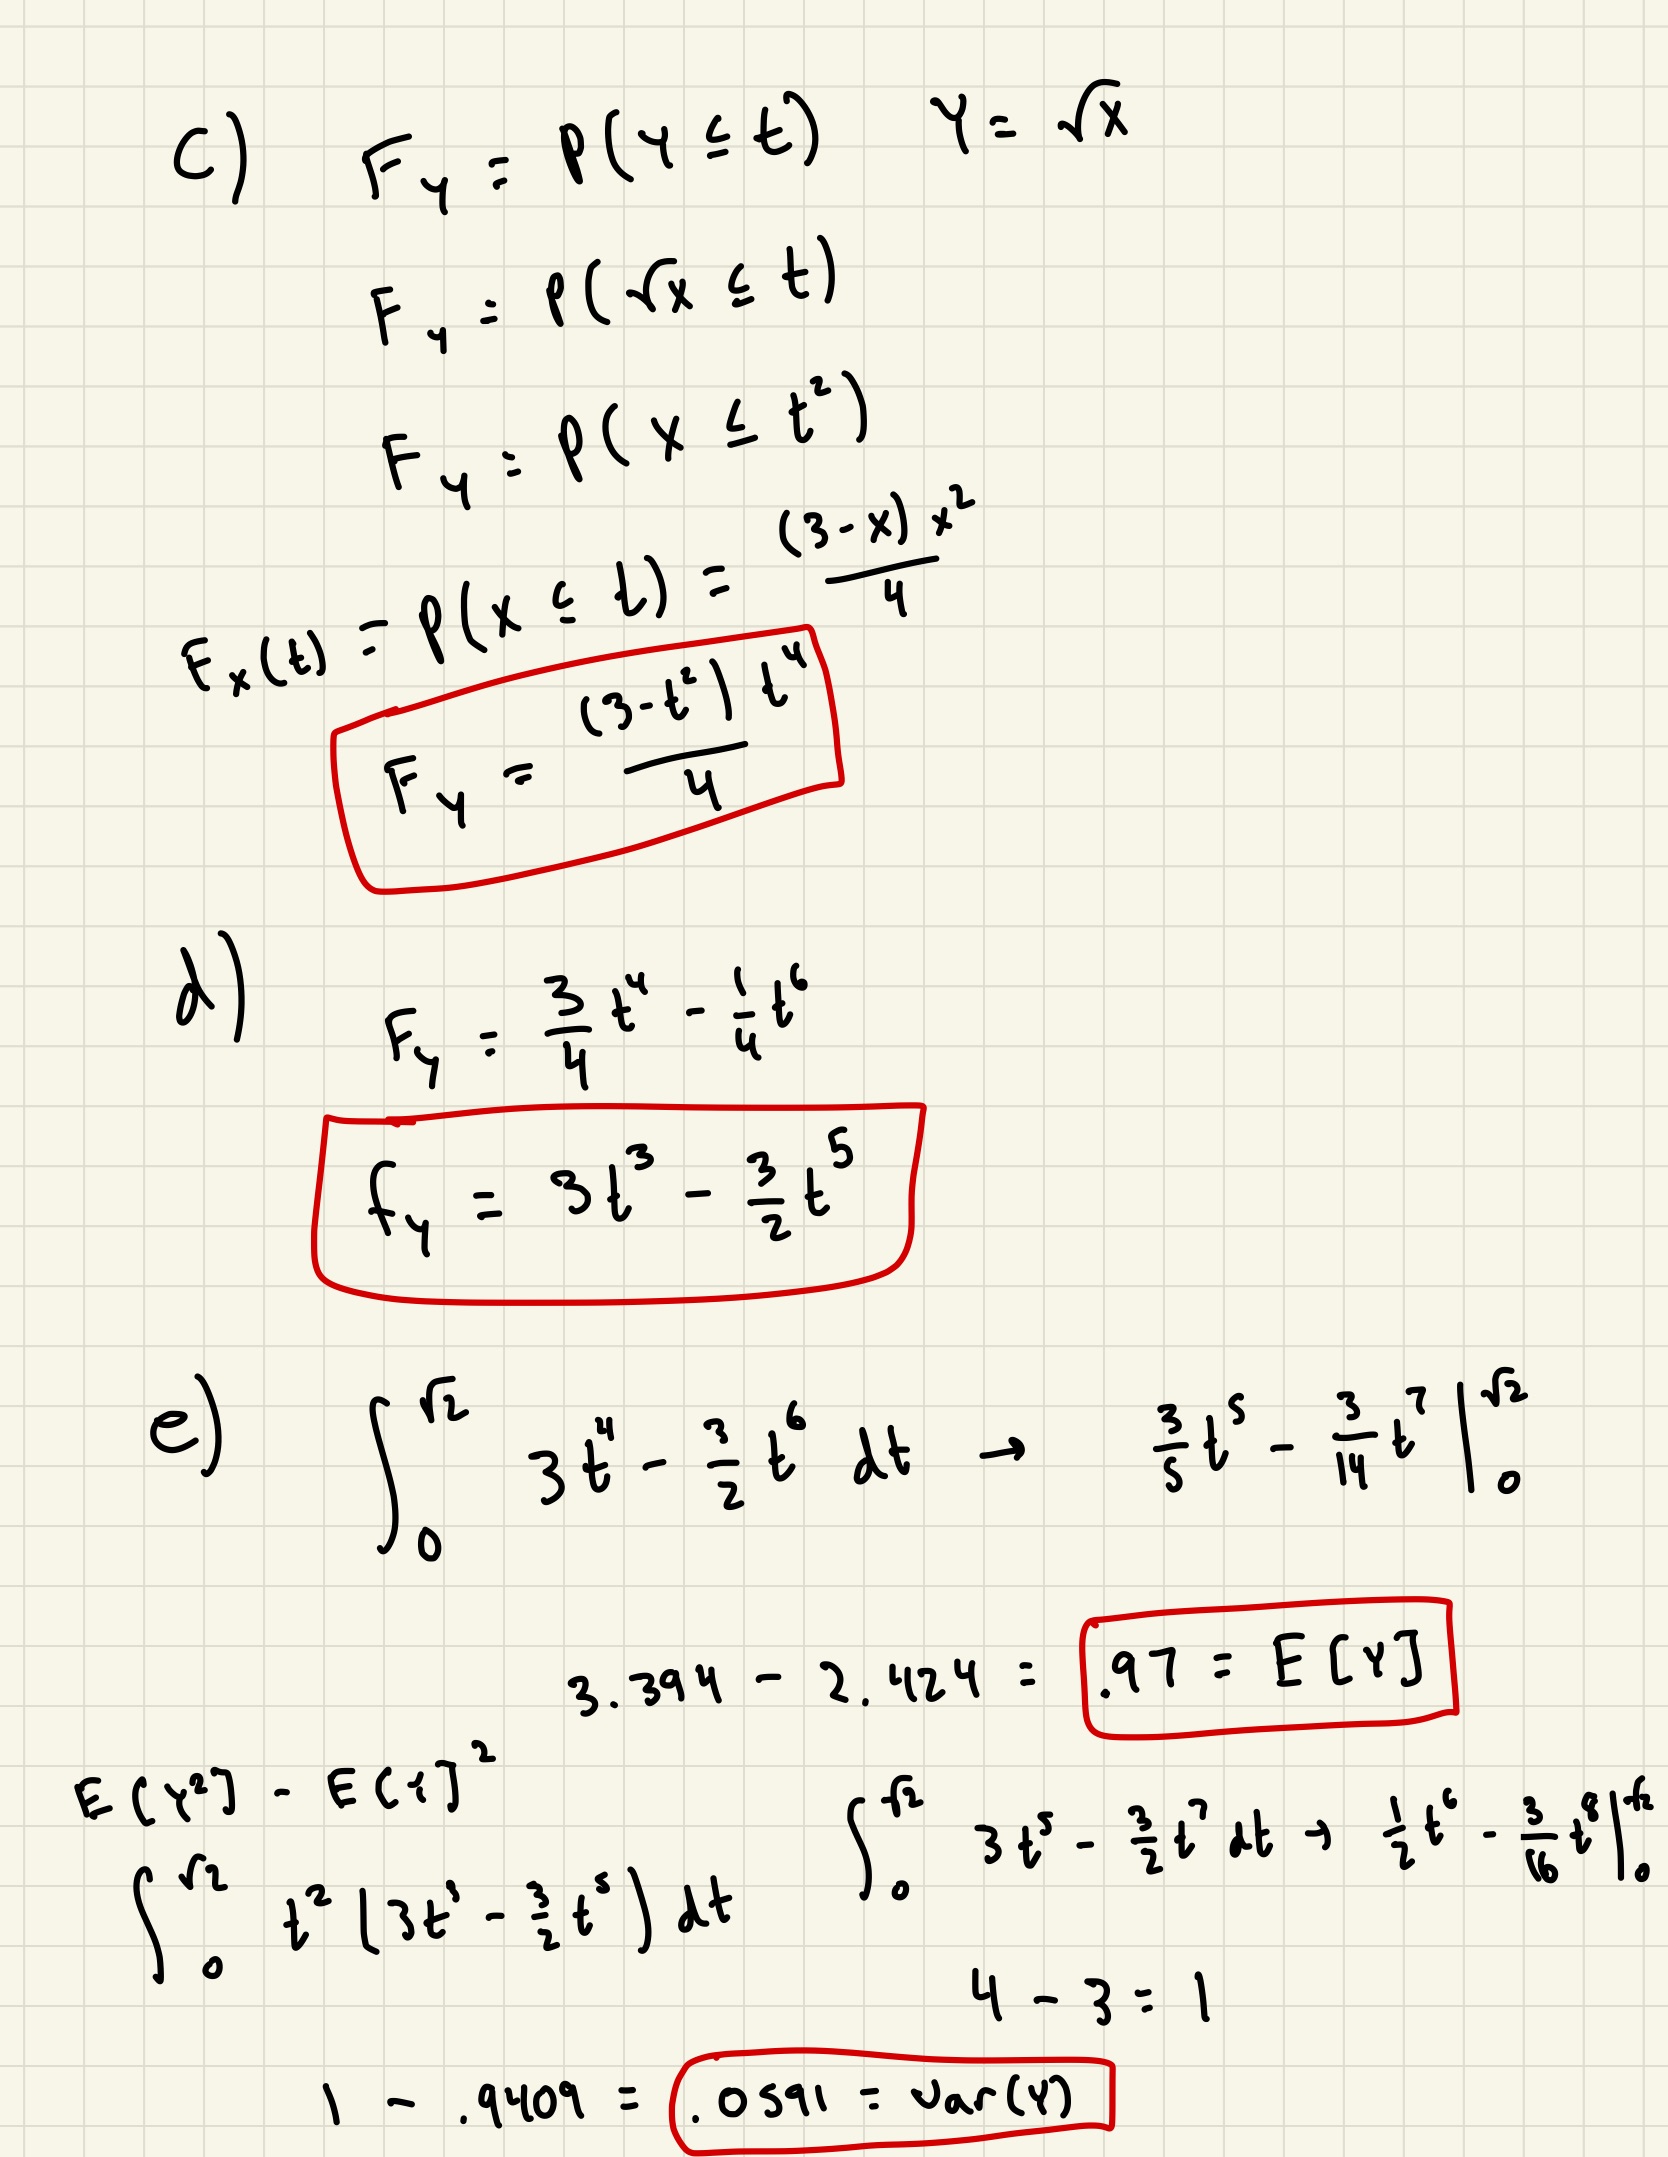 c) F_y = P(Y ≤ t) Y = √x
F_y = P(√x ≤ t)
F_y = P(x ≤ t²)
F_x(t) = P(x ≤ t) = (3-x)x² / 4
F_y = (3-t²)t⁴ / 4
d) F_y = 3/4 t⁴ - 1/4 t⁶
f_y = 3t³ - 3/2 t⁵
e) ∫₀^√2 3t⁴ - 3/2 t⁶ dt → 3/5 t⁵ - 3/14 t⁷ |₀^√2
3.394 - 2.424 = .97 = E[Y]
E[Y²] - E[Y]²
∫₀^√2 t²(3t³ - 3/2 t⁵) dt
∫₀^√2 3t⁵ - 3/2 t⁷ dt → 1/2 t⁶ - 3/16 t⁸ |₀^√2
4 - 3 = 1
1 - .9409 = .0591 = Var(Y)